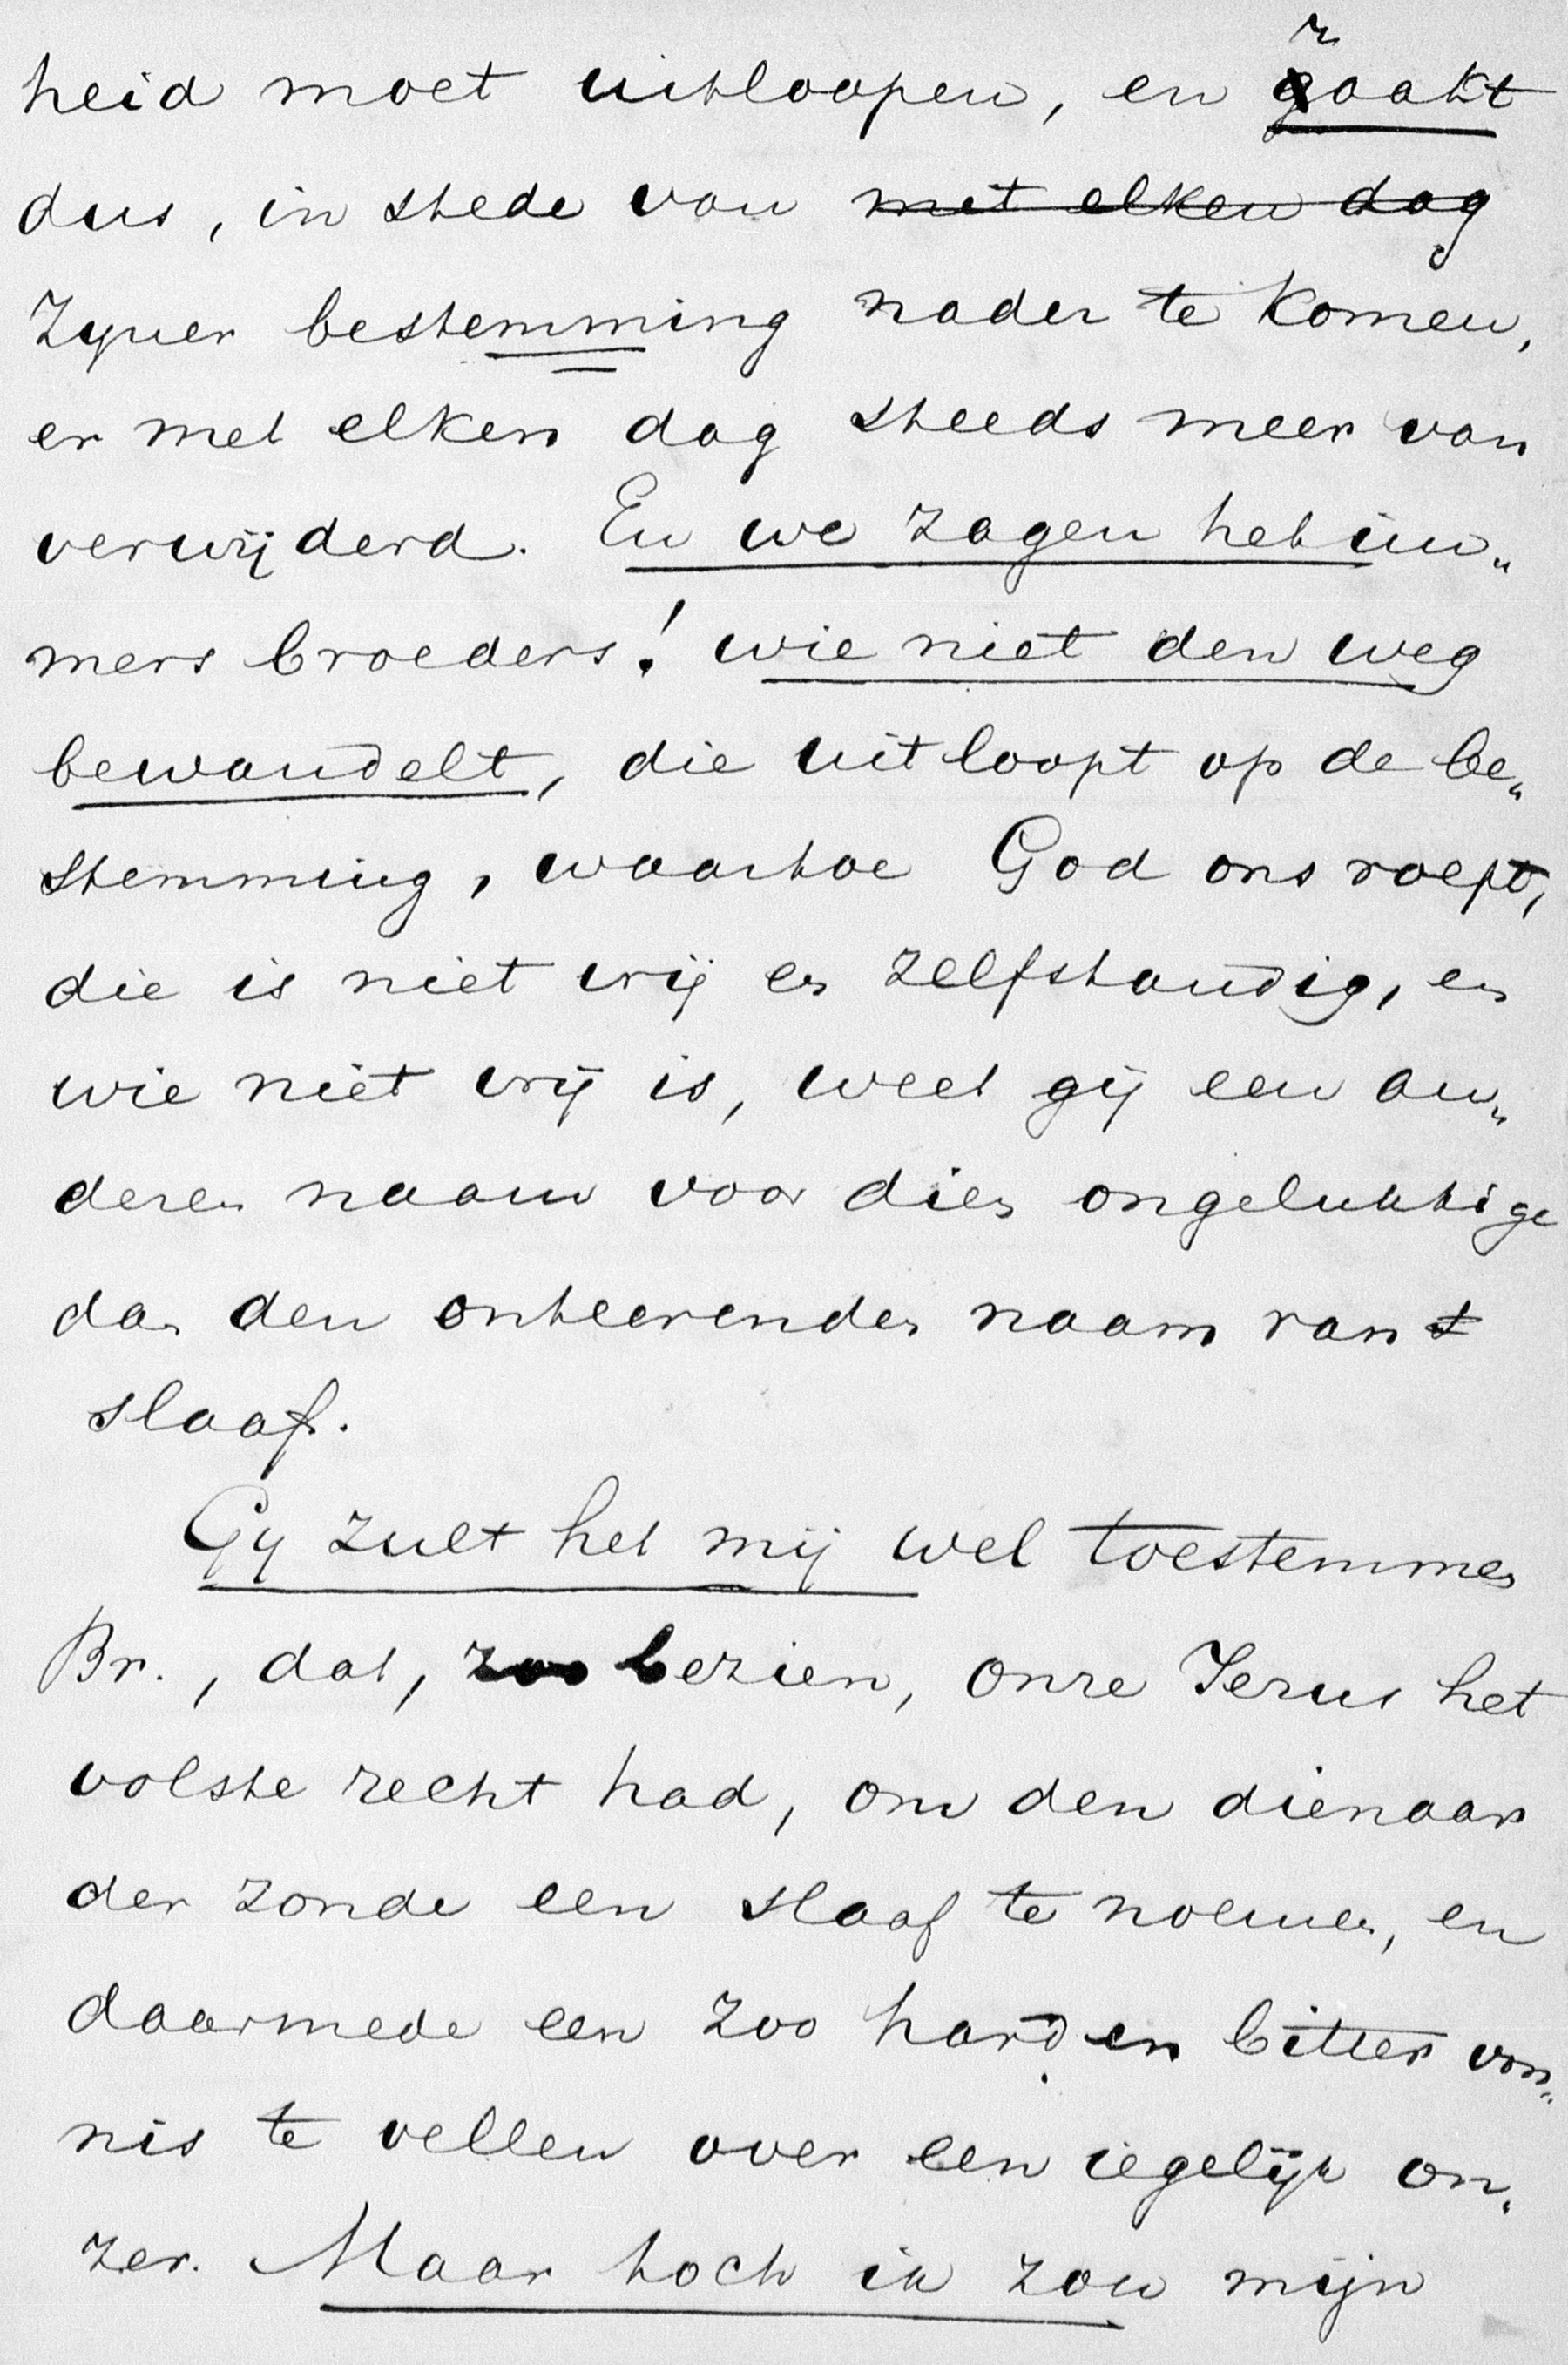 heid moet uitloopen, en raakt
dus, in stede van met elken dag
zyner bestemming nader te komen,
er met elken dag steeds meer van
verwijderd. En we zagen het im„
mers broeders! wie niet den weg
bewandelt, die uitloopt op de be„
stemming, waartoe God ons roept,
die is niet vrij en zelfstandig, en
wie niet vrij is, weet gij een an„
deren naam voor dien ongelukkige
dan den onteerenden naam van
slaaf.
Gy zult het mij wel toestemmen
Br., dat, zoo bezien, onze Jezus het
volste recht had, om den dienaar
der zonde een slaaf te noemen, en
daarmede een zoo hard en bitter von„
nis te vellen over een iegelijk on„
zer. Maar toch ik zou mijn